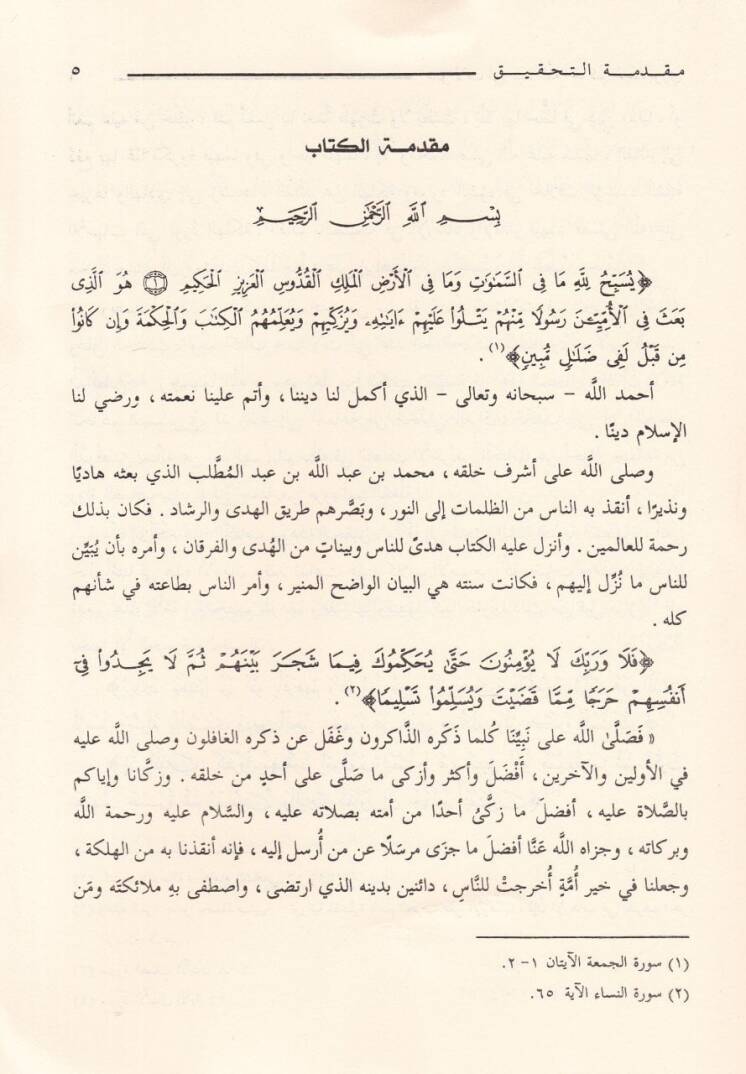 مقدمة التحقيق ٥
مقدمة الكتاب
بِسْمِ اللَّهِ الرَّحْمَٰنِ الرَّحِيمِ
﴿يُسَبِّحُ لِلَّهِ مَا فِى ٱلسَّمَٰوَٰتِ وَمَا فِى ٱلْأَرْضِ ٱلْمَلِكِ ٱلْقُدُّوسِ ٱلْعَزِيزِ ٱلْحَكِيمِ ۝١ هُوَ ٱلَّذِى
بَعَثَ فِى ٱلْأُمِّيِّـۧنَ رَسُولًا مِّنْهُمْ يَتْلُوا۟ عَلَيْهِمْ ءَايَٰتِهِۦ وَيُزَكِّيهِمْ وَيُعَلِّمُهُمُ ٱلْكِتَٰبَ وَٱلْحِكْمَةَ وَإِن كَانُوا۟
مِن قَبْلُ لَفِى ضَلَٰلٍ مُّبِينٍ﴾(١) .
أحمد اللَّه – سبحانه وتعالى – الذي أكمل لنا ديننا ، وأتم علينا نعمته ، ورضي لنا
الإسلام دينًا .
وصلى اللَّه على أشرف خلقه ، محمد بن عبد اللَّه بن عبد المُطَّلب الذي بعثه هاديًا
ونذيرًا ، أنقذ به الناس من الظلمات إلى النور ، وبَصَّرهم طريق الهدى والرشاد . فكان بذلك
رحمة للعالمين . وأنزل عليه الكتاب هدىً للناس وبيناتٍ من الهُدى والفرقان ، وأمره بأن يُبَيِّن
للناس ما نُزِّل إليهم ، فكانت سنته هي البيان الواضح المنير ، وأمر الناس بطاعته في شأنهم
كله .
﴿فَلَا وَرَبِّكَ لَا يُؤْمِنُونَ حَتَّىٰ يُحَكِّمُوكَ فِيمَا شَجَرَ بَيْنَهُمْ ثُمَّ لَا يَجِدُوا۟ فِىٓ
أَنفُسِهِمْ حَرَجًا مِّمَّا قَضَيْتَ وَيُسَلِّمُوا۟ تَسْلِيمًا﴾(٢) .
« فَصَلَّىٰ اللَّه على نَبِيِّنَا كُلما ذَكَره الذَّاكرون وغَفَل عن ذكره الغافلون وصلى اللَّه عليه
في الأولين والآخرين ، أَفْضَلَ وأكثر وأزكى ما صَلَّى على أحدٍ من خلقه . وزكَّانا وإياكم
بالصَّلاة عليه ، أفضلَ ما زكَّىٰ أحدًا من أمته بصلاته عليه ، والسَّلام عليه ورحمة اللَّه
وبركاته ، وجزاه اللَّه عَنَّا أفضلَ ما جزَى مرسَلًا عن من أُرسل إليه ، فإنه أنقذنا به من الهلكة ،
وجعلنا في خير أُمَّةٍ أُخرجتْ للنَّاسِ ، دائنين بدينه الذي ارتضى ، واصطفى بهِ ملائكتَه ومَن
(١) سورة الجمعة الآيتان ١- ٢.
(٢) سورة النساء الآية ٦٥.